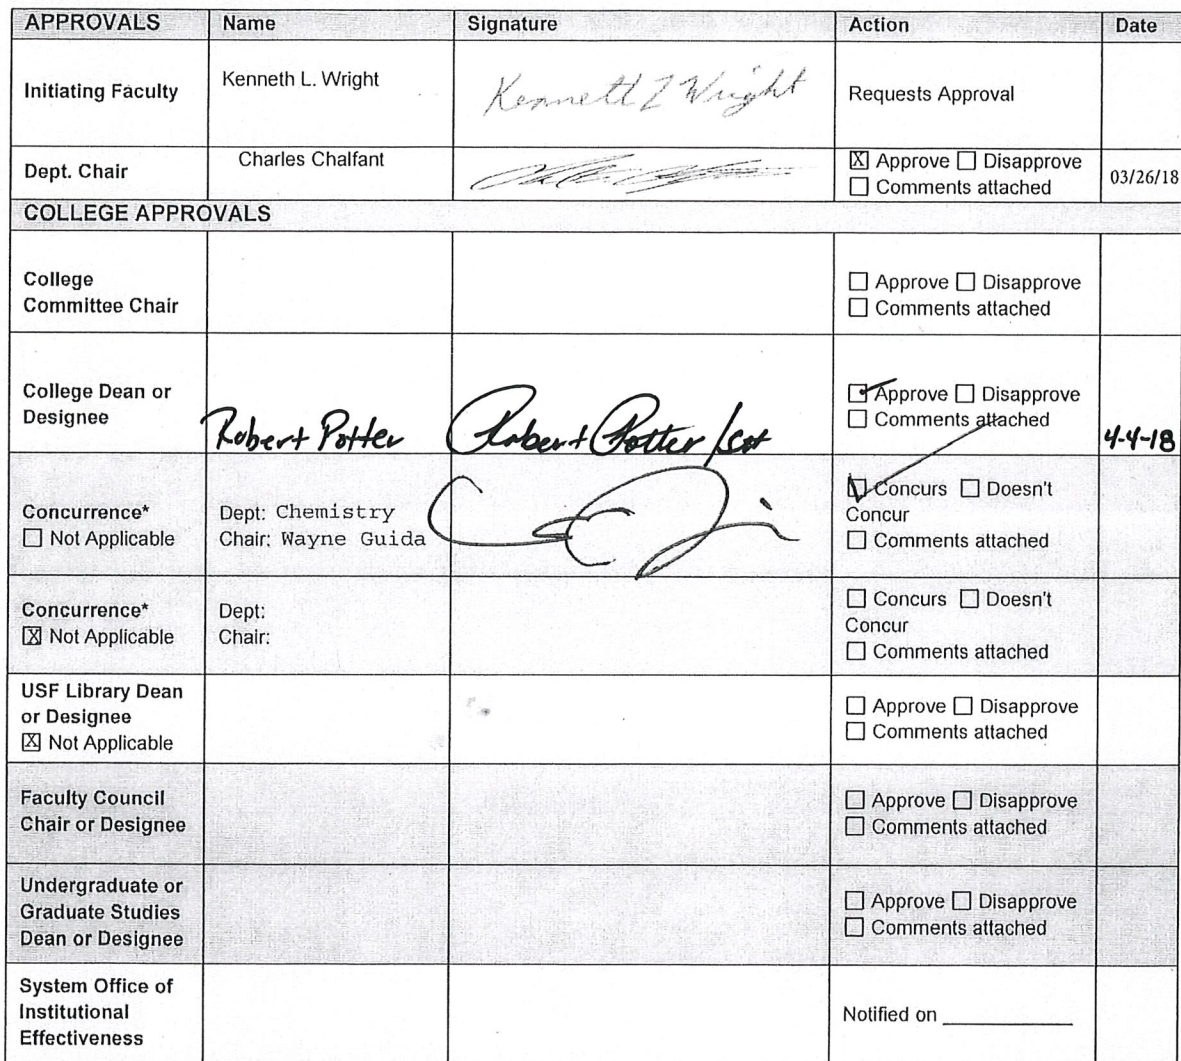 APPROVALS Name Signature Action Date
Initiating Faculty Kenneth L. Wright Kenneth L Wright Requests Approval
Dept. Chair Charles Chalfant ☒ Approve ☐ Disapprove
☐ Comments attached 03/26/18
COLLEGE APPROVALS
College
Committee Chair
☐ Approve ☐ Disapprove
☐ Comments attached
College Dean or
Designee
Robert Potter Robert Potter
☑ Approve ☐ Disapprove
☐ Comments attached
4-4-18
Concurrence*
☐ Not Applicable
Dept: Chemistry
Chair: Wayne Guida
☑ Concurs ☐ Doesn't
Concur
☐ Comments attached
Concurrence*
☒ Not Applicable
Dept:
Chair:
☐ Concurs ☐ Doesn't
Concur
☐ Comments attached
USF Library Dean
or Designee
☒ Not Applicable
☐ Approve ☐ Disapprove
☐ Comments attached
Faculty Council
Chair or Designee
☐ Approve ☐ Disapprove
☐ Comments attached
Undergraduate or
Graduate Studies
Dean or Designee
☐ Approve ☐ Disapprove
☐ Comments attached
System Office of
Institutional
Effectiveness
Notified on